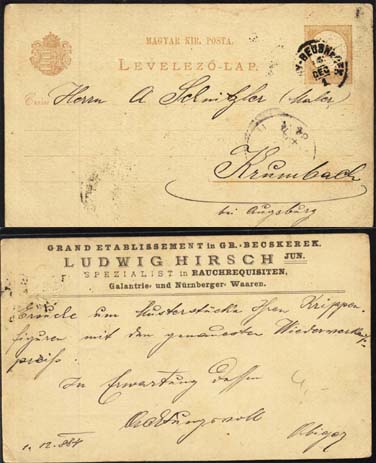 MAGYAR KIR. POSTA.
LEVELEZŐ-LAP.
Herrn A Schnitzler (Maler)
Krumbach
bei Augsburg
GRAND ETABLISSEMENT in GR.-BECSKEREK.
LUDWIG HIRSCH JUN.
SPEZIALIST in RAUCHREQUISITEN,
Galantrie- und Nürnberger-Waaren.
Ersuche um Musterstücke Ihrer Krippen
figuren mit den genauesten Wiederverkaufs
preise.
In Erwartung dessen
Achtungsvoll
Obiger
1. 12. 884